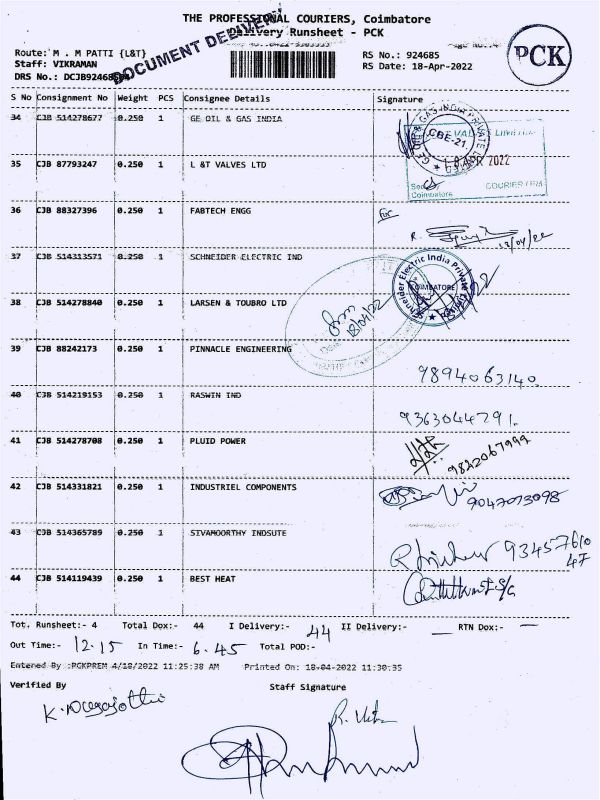 THE PROFESSIONAL COURIERS, Coimbatore
Delivery Runsheet - PCK
DOCUMENT DELIVERY
PCK
Route: M . M PATTI {L&T}
RS No.: 924685
Staff: VIKRAMAN
RS Date: 18-Apr-2022
DRS No.:
S No Consignment No Weight PCS Consignee Details Signature
34 CJB 514278677 0.250 1 GE OIL & GAS INDIA
CBE-21.
18 APR 2022
Coimbatore
35 CJB 87793247 0.250 1 L &T VALVES LTD
36 CJB 88327396 0.250 1 FABTECH ENGG
for
37 CJB 514313571 0.250 1 SCHNEIDER ELECTRIC IND
Schneider Electric India Private
COIMBATORE
38 CJB 514278840 0.250 1 LARSEN & TOUBRO LTD
18/04/22
39 CJB 88242173 0.250 1 PINNACLE ENGINEERING
9894063140.
40 CJB 514219153 0.250 1 RASWIN IND
9363044791.
41 CJB 514278708 0.250 1 PLUID POWER
9822067999
42 CJB 514331821 0.250 1 INDUSTRIEL COMPONENTS
9047073098
43 CJB 514365789 0.250 1 SIVAMOORTHY INDSUTE
44 CJB 514119439 0.250 1 BEST HEAT
Tot. Runsheet:- 4 Total Dox:- 44 I Delivery:- 44 II Delivery:- — RTN Dox:- —
Out Time:- 12.15 In Time:- 6.45 Total POD:-
Entered By :PCKPREM 4/18/2022 11:25:38 AM Printed On: 18-04-2022 11:30:35
Verified By
Staff Signature